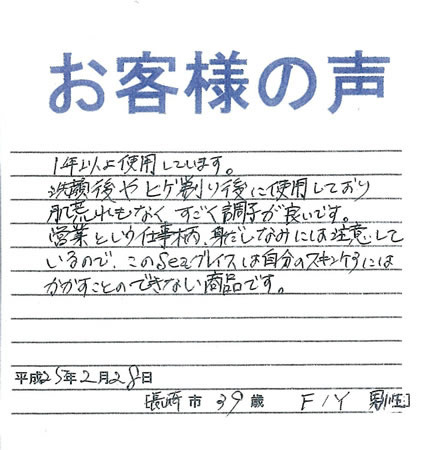 お客様の声
1年以上使用しています。
洗顔後やヒゲ剃り後に使用しており
肌荒れもなく すごく調子が良いです。
営業という仕事柄、身だしなみには注意して
いるので、このSeaプレイスは自分のスキンケアには
かかすことのできない商品です。
平成25年2月28日
長崎市 39歳 F/Y 男性